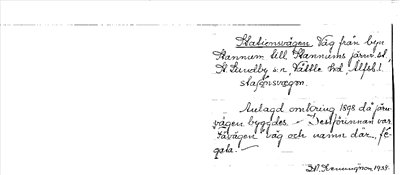 Stationsvägen Väg från byn
Stannum till Stannums järnv.st.,
St. Lundby s:n, Vättle hd, Älfsb.l.
Anlagd omkring 1898 då järn-
vägen byggdes. – Dessförinnan var
Fävägen väg och namn där, fé-
gata. –
1938.